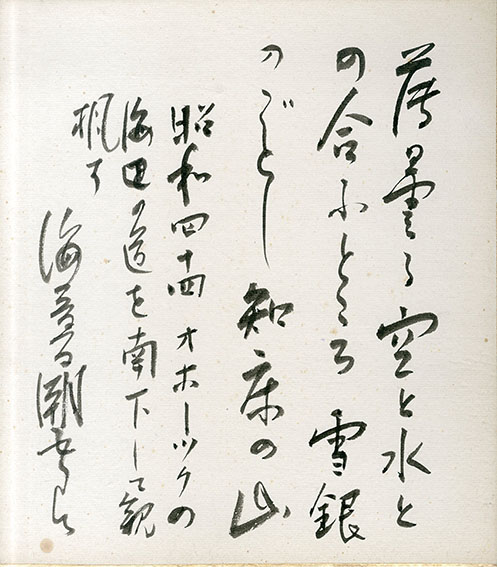 薄曇る空と水と
の合ふところ 雪銀
のごとし 知床の山
昭和四十四 オホーツクの
海辺の道を南下して観
楓子
海音寺潮五郎